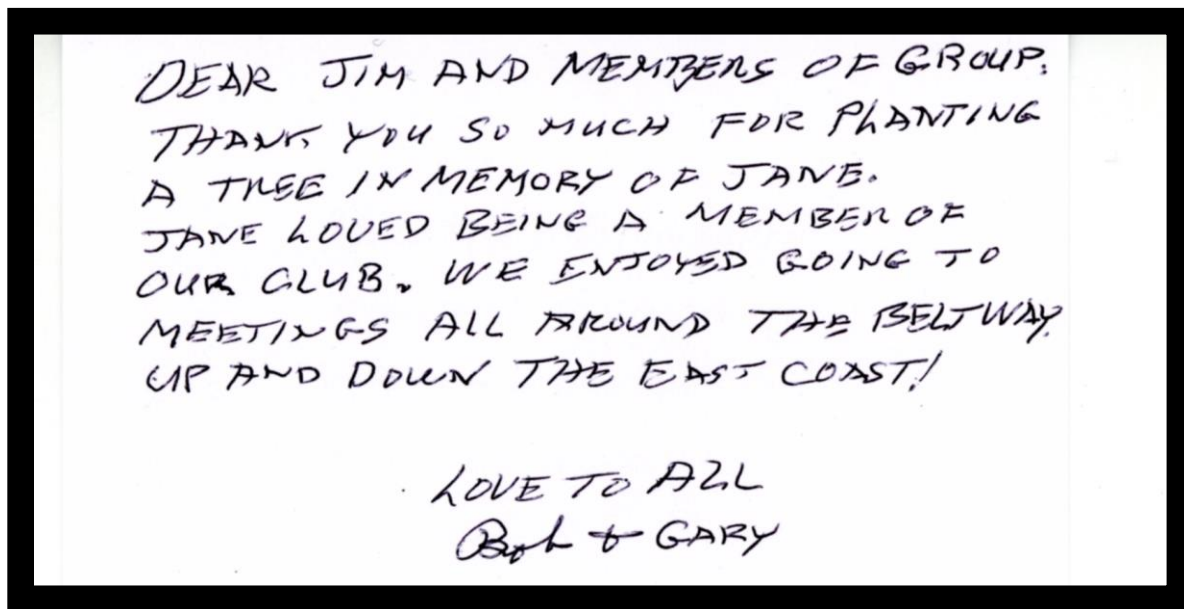 DEAR JIM AND MEMBERS OF GROUP.
THANK YOU SO MUCH FOR PLANTING
A TREE IN MEMORY OF JANE.
JANE LOVED BEING A MEMBER OF
OUR CLUB. WE ENJOYED GOING TO
MEETINGS ALL AROUND THE BELTWAY.
UP AND DOWN THE EAST COAST!
LOVE TO ALL
+ GARY